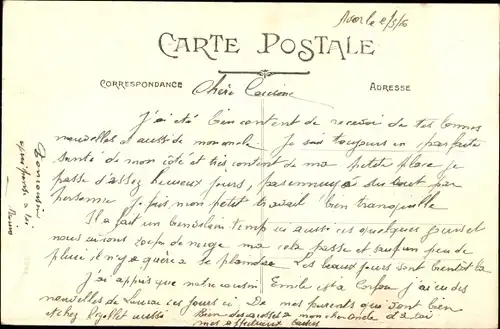 le 2/3/16
CARTE POSTALE
CORRESPONDANCE
ADRESSE
Chère Cousine
J'ai été bien content de recevoir de tes bonnes
nouvelles et aussi de mon oncle je suis toujours en parfaite
santé de mon côté et très content de ma petite place je
passe d'assez heureux jours, pas ennuyé surtout par
personne je fais mon petit travail bien tranquille
Il a fait un bien vilain temps ici aussi ces quelques jours et
nous avions 20 cm de neige ma cela passe et sauf un peu de
pluie il n'y a guère à se plaindre Les beaux jours sont bientôt là
J'ai appris que notre cousin Emile est à Corfou j'ai eu des
nouvelles de ces jours ci De mes parents qui vont bien
et chez aussi Bien des choses à mon cher oncle à toi
mes affectueux baisers
Ton cousin
qui pense à toi